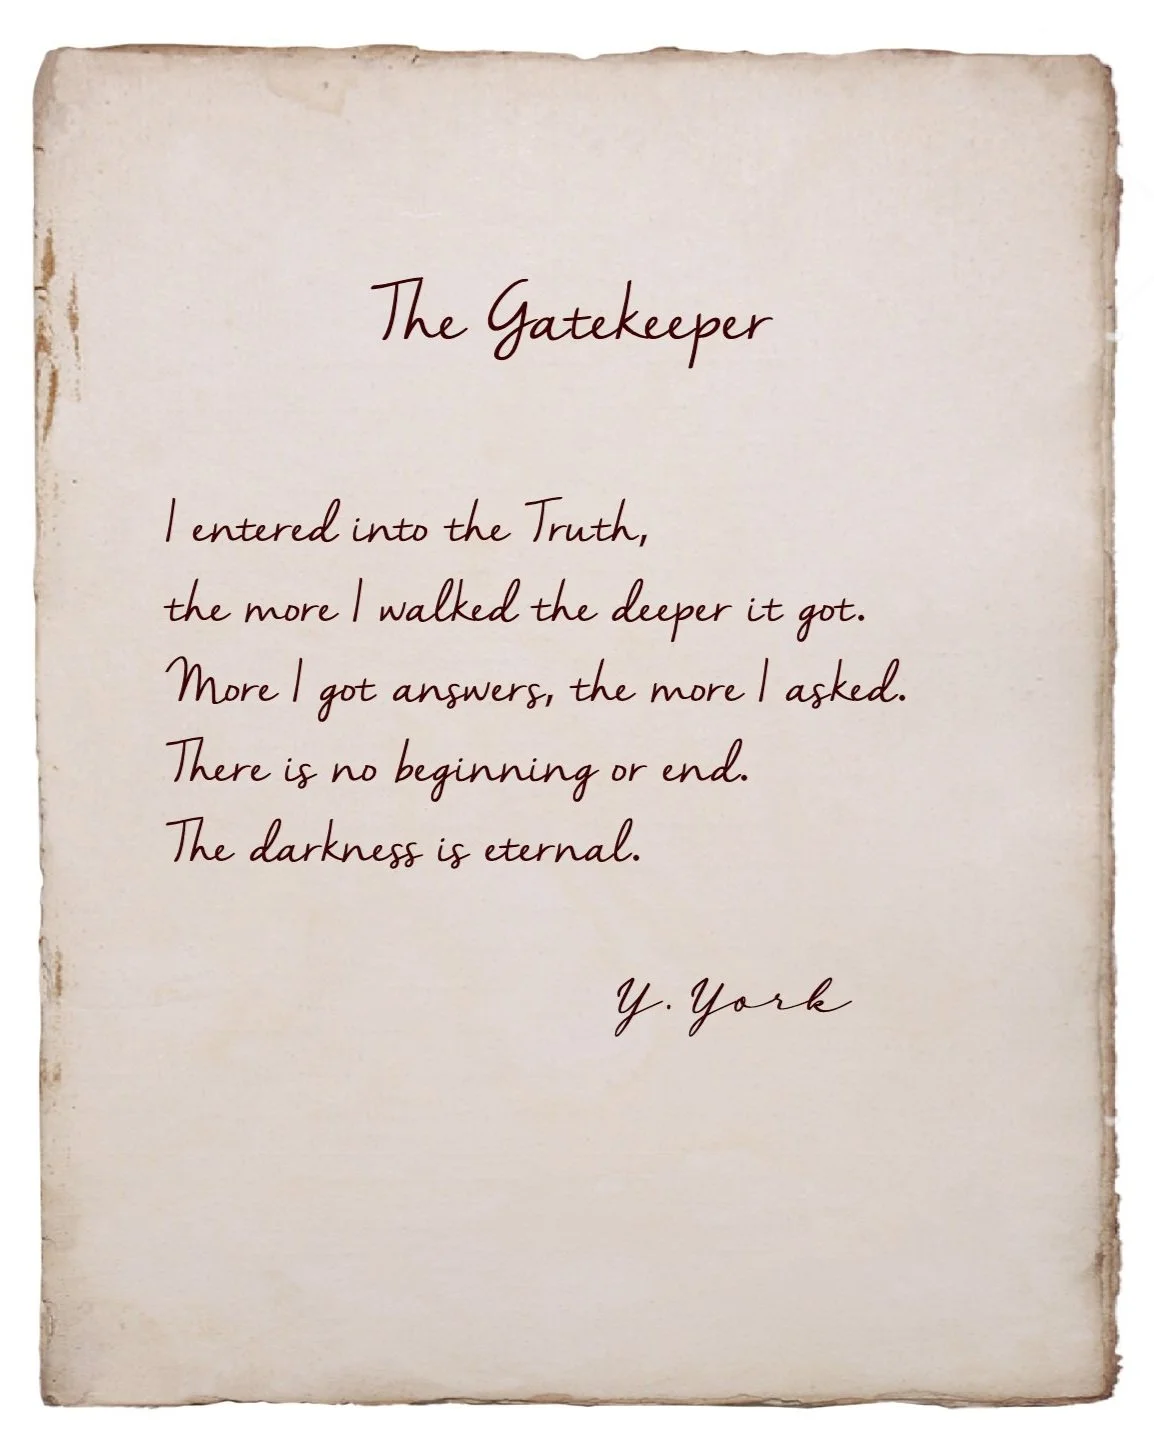 The Gatekeeper
I entered into the Truth,
the more I walked the deeper it got.
More I got answers, the more I asked.
There is no beginning or end.
The darkness is eternal.
Y. York